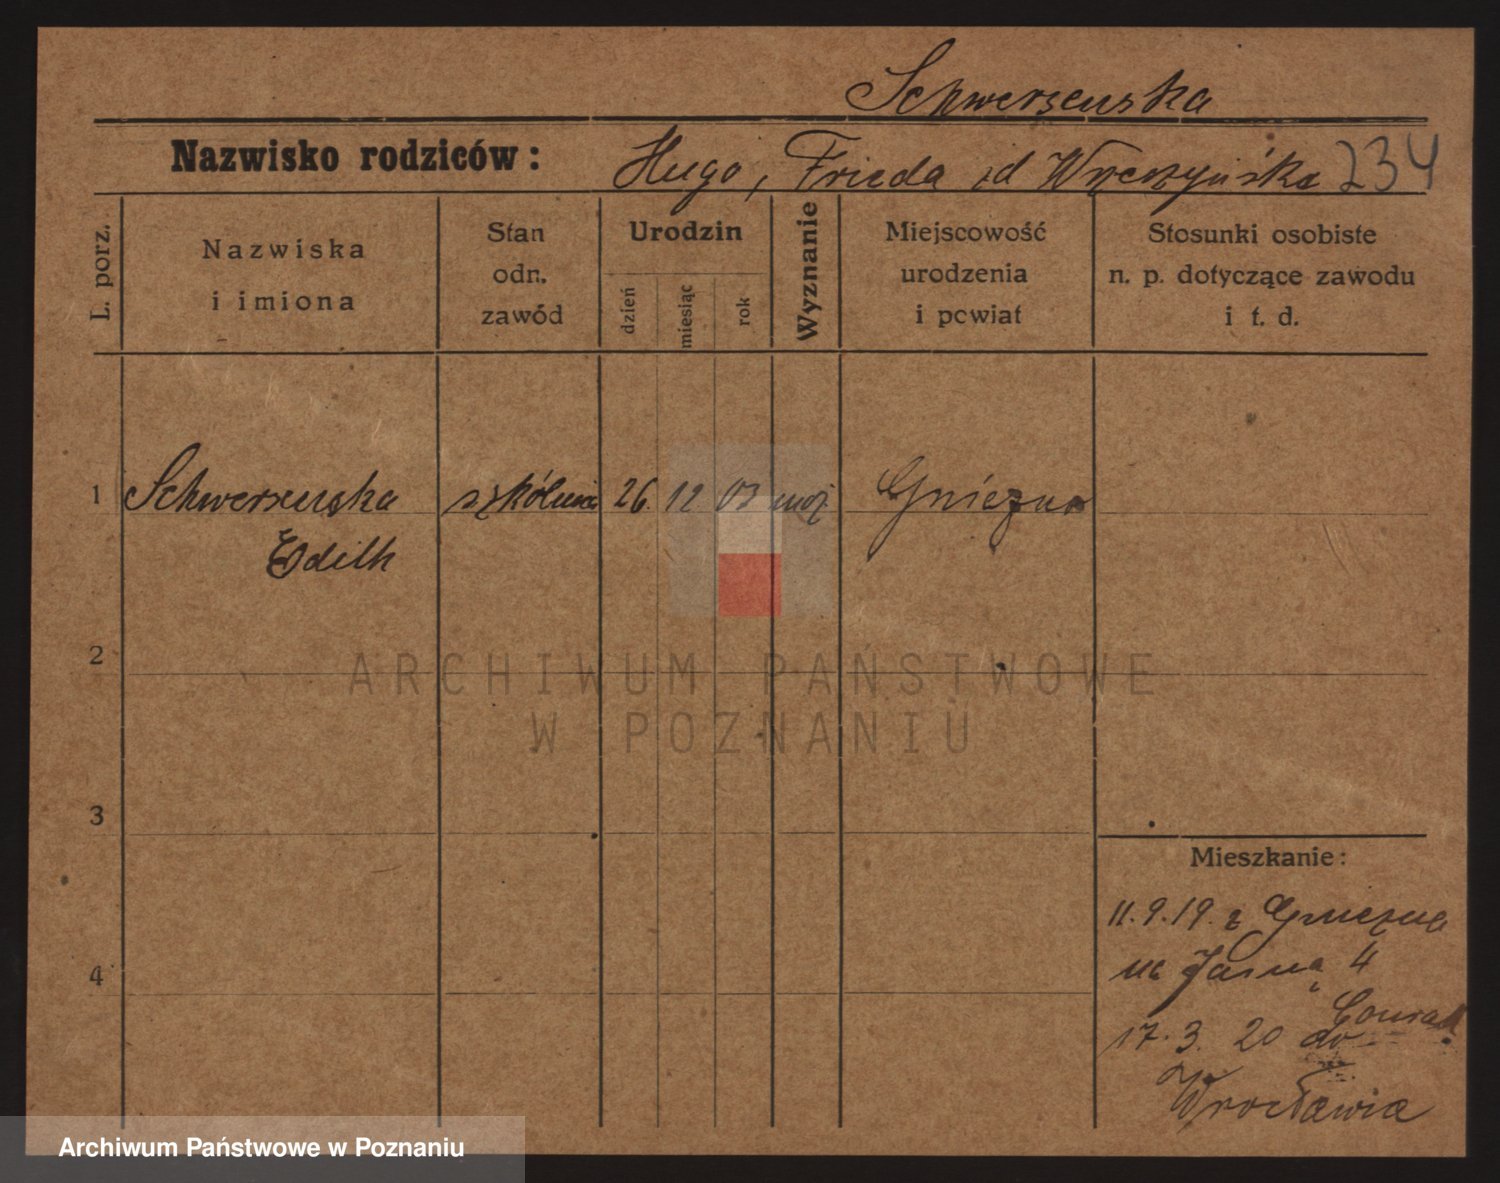 Schwersenska
Nazwisko rodziców: Hugo, Frieda zd Wręczyńska 234
L. porz.
Nazwiska
i imiona
Stan
odn.
zawód
Urodzin
dzień
miesiąc
rok
Wyznanie
Miejscowość
urodzenia
i powiat
Stosunki osobiste
n. p. dotyczące zawodu
i t. d.
1 Schwersenska 26. 12 03 moj Gniezno
Edith
2
ARCHIWUM PAŃSTWOWE
W POZNANIU
3
Mieszkanie:
11.9.19. z Gniezna
4
na Jasną 4
17. 3. 20 do
Wrocławia
Archiwum Państwowe w Poznaniu